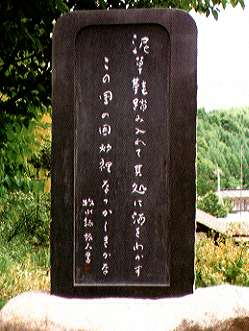 泥草鞋踏み入れて其処に酒をわかす
この国の囲炉裡なつかしきかな
牧水